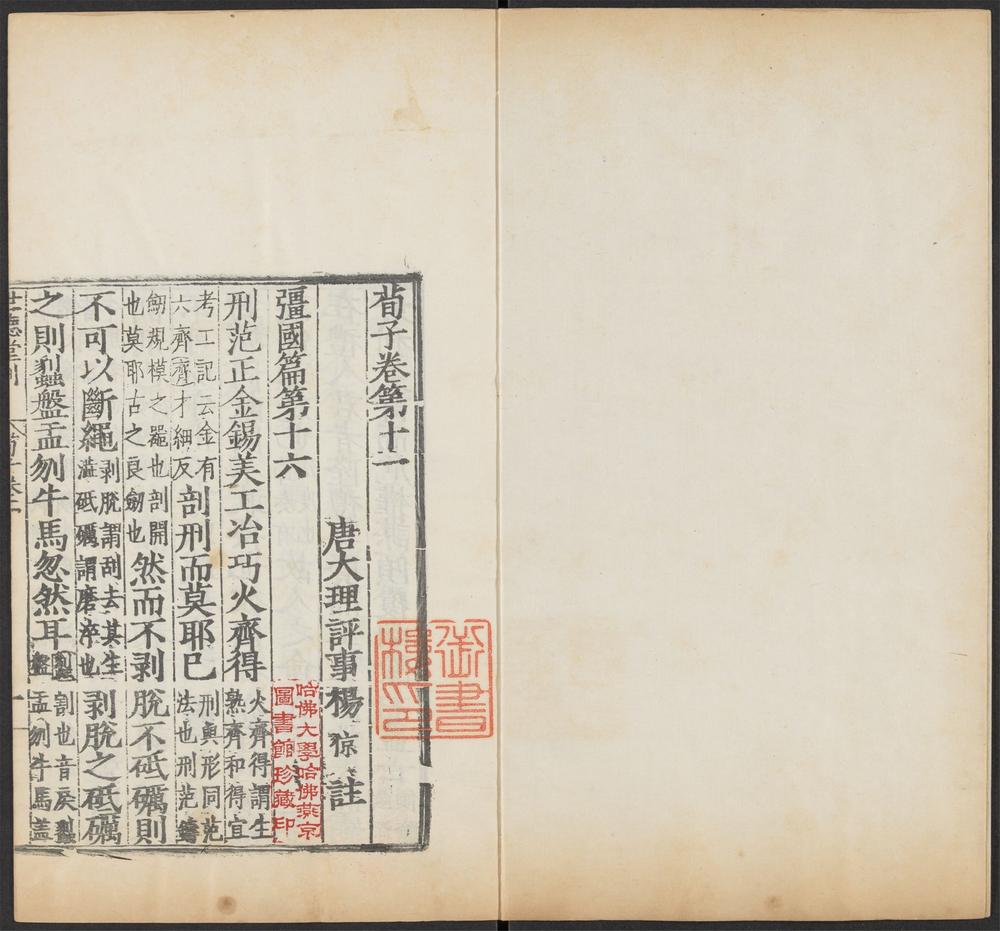 荀子卷第十一
唐大理評事楊倞註
哈佛大學哈佛燕京
圖書館珍藏印
彊國篇第十六
刑范正金錫美工冶巧火齊得火齊得謂生熟齊和得宜
考工記云金有六齊齊才細反剖刑而莫耶已刑與形同范法也刑范鑄
劒規模之器也剖開也莫耶古之良劒也然而不剥脫不砥礪則
不可以斷繩剥脫謂刮去其生澁砥礪謂磨淬也剥脫之砥礪
之則劙盤盂刎牛馬忽然耳劙割也音戾劙盤盂刎牛馬盖
世德堂刊